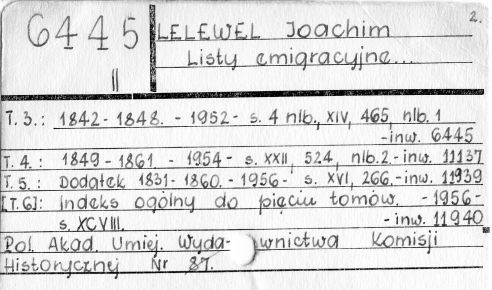 2.
6445 LELEWEL Joachim
II Listy emigracyjne...
T. 3.: 1842-1848. - 1952- s. 4 nlb., XIV, 465, nlb. 1
-inw. 6445
T. 4.: 1849-1861 - 1954- s. XXII, 524, nlb. 2.-inw. 11137
T. 5.: Dodatek 1831-1860. -1956- s. XVI, 266.-inw. 11939
[T. 6]: Indeks ogólny do pięciu tomów. -1956-
s. XCVIII. -inw. 11940
Pol. Akad. Umiej. Wyda-wnictwa Komisji
Historycznej Nr 87.